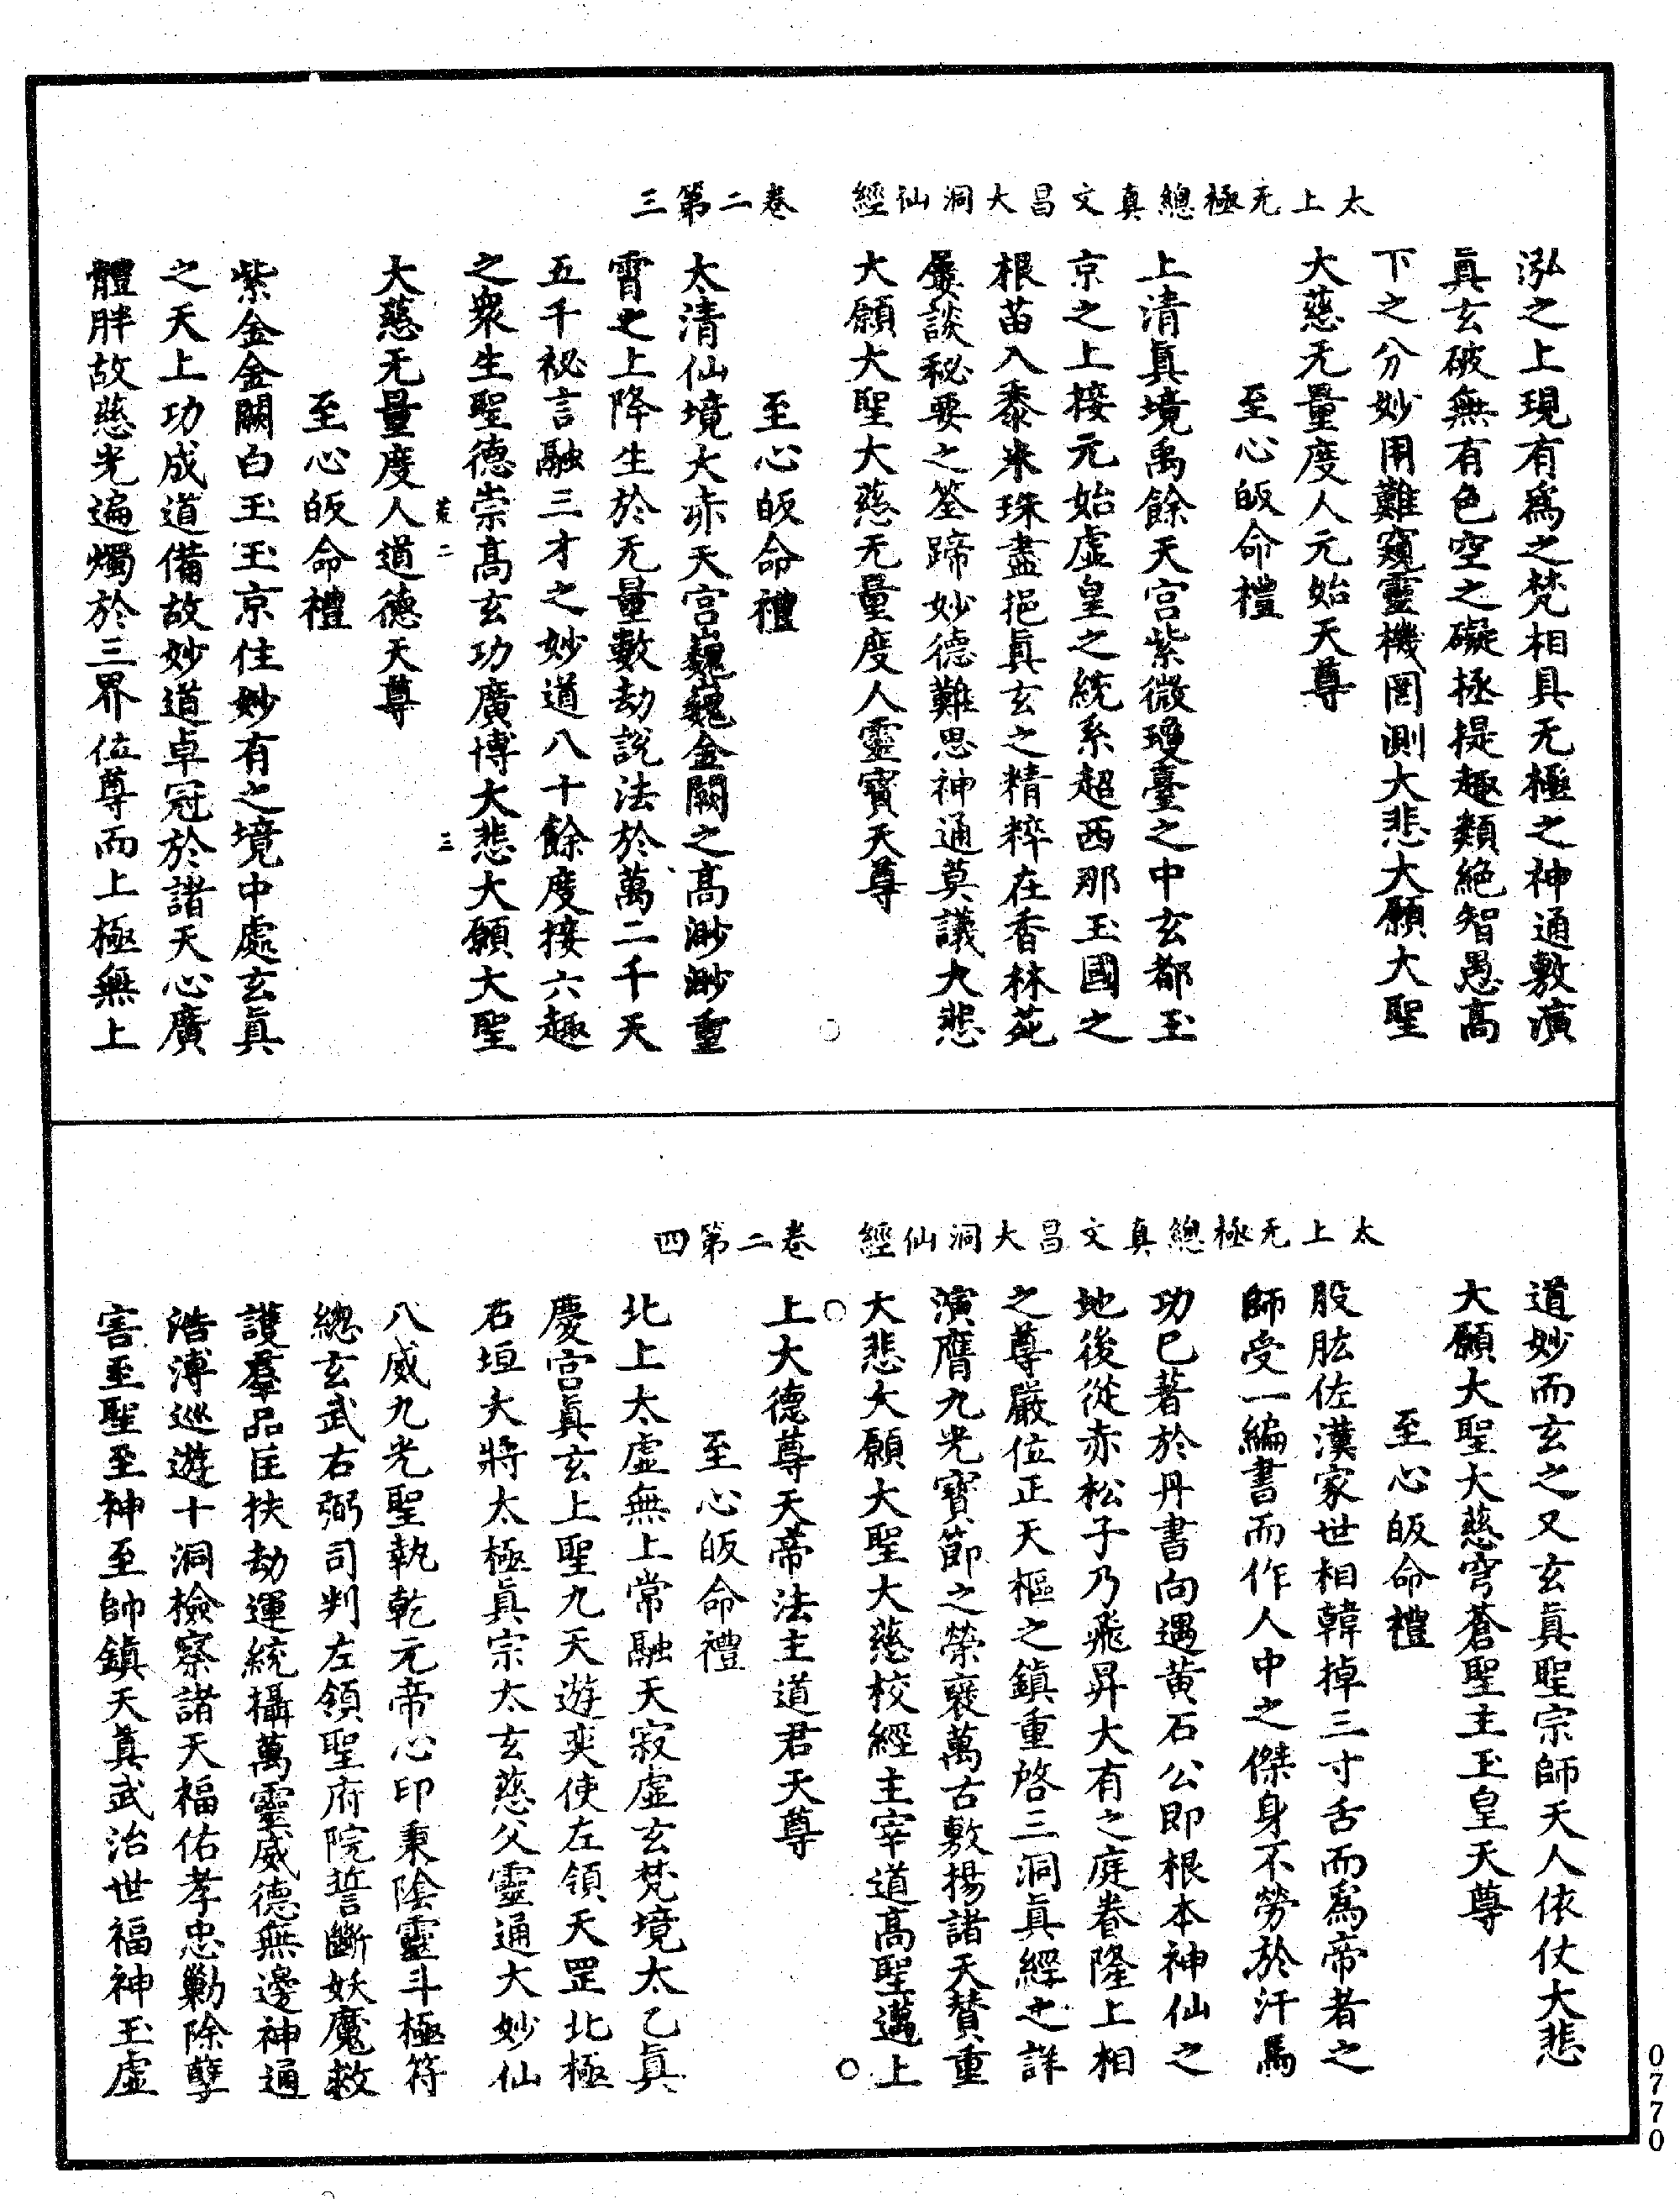 太上无極總真文昌大洞仙經　卷二第三
泓之上現有爲之梵相具无極之神通敷演
真玄破無有色空之礙拯提趣類絶智愚高
下之分妙用難窺靈機罔測大悲大願大聖
大慈无量度人元始天尊
至心皈命禮
上清真境禹餘天宮紫微瓊臺之中玄都玉
京之上接元始虛皇之統系超西那玉國之
根苗入黍米珠盡挹真玄之精粹在香林苑
屢談秘要之筌蹄妙德難思神通莫議大悲
大願大聖大慈无量度人靈寶天尊
至心皈命禮
太清仙境大赤天宮巍巍金闕之高渺渺重
霄之上降生於无量數劫說法於萬二千天
五千祕言融三才之妙道八十餘度接六趣
之衆生聖德崇高玄功廣博大悲大願大聖
荒二　三
大慈无量度人道德天尊
至心皈命禮
紫金金闕白玉玉京住妙有之境中處玄真
之天上功成道備故妙道卓冠於諸天心廣
體胖故慈光遍燭於三界位尊而上極無上
太上无極總真文昌大洞仙經　卷二第四
道妙而玄之又玄真聖宗師天人依仗大悲
大願大聖大慈穹蒼聖主玉皇天尊
至心皈命禮
股肱佐漢家世相韓掉三寸舌而爲帝者之
師受一編書而作人中之傑身不勞於汗馬
功已著於丹書向遇黄石公即根本神仙之
地後從赤松子乃飛昇大有之庭眷隆上相
之尊嚴位正天樞之鎮重啓三洞真經之詳
演膺九光寶節之榮褒萬古敷揚諸天賛重
大悲大願大聖大慈校經主宰道高聖邁上
上大德尊天帝法主道君天尊
至心皈命禮
北上太虛無上常融天寂虛玄梵境太乙真
慶宮真玄上聖九天遊奕使左領天罡北極
右垣大將太極真宗太玄慈父靈通大妙仙
八威九光聖執乾元帝心印秉陰靈斗極符
總玄武右弼司判左領聖府院誓斷妖魔救
護羣品匡扶劫運統攝萬靈威德無邊神通
浩溥巡遊十洞檢察諸天福佑孝忠勦除孽
害至聖至神至帥鎮天真武治世福神玉虛
0770